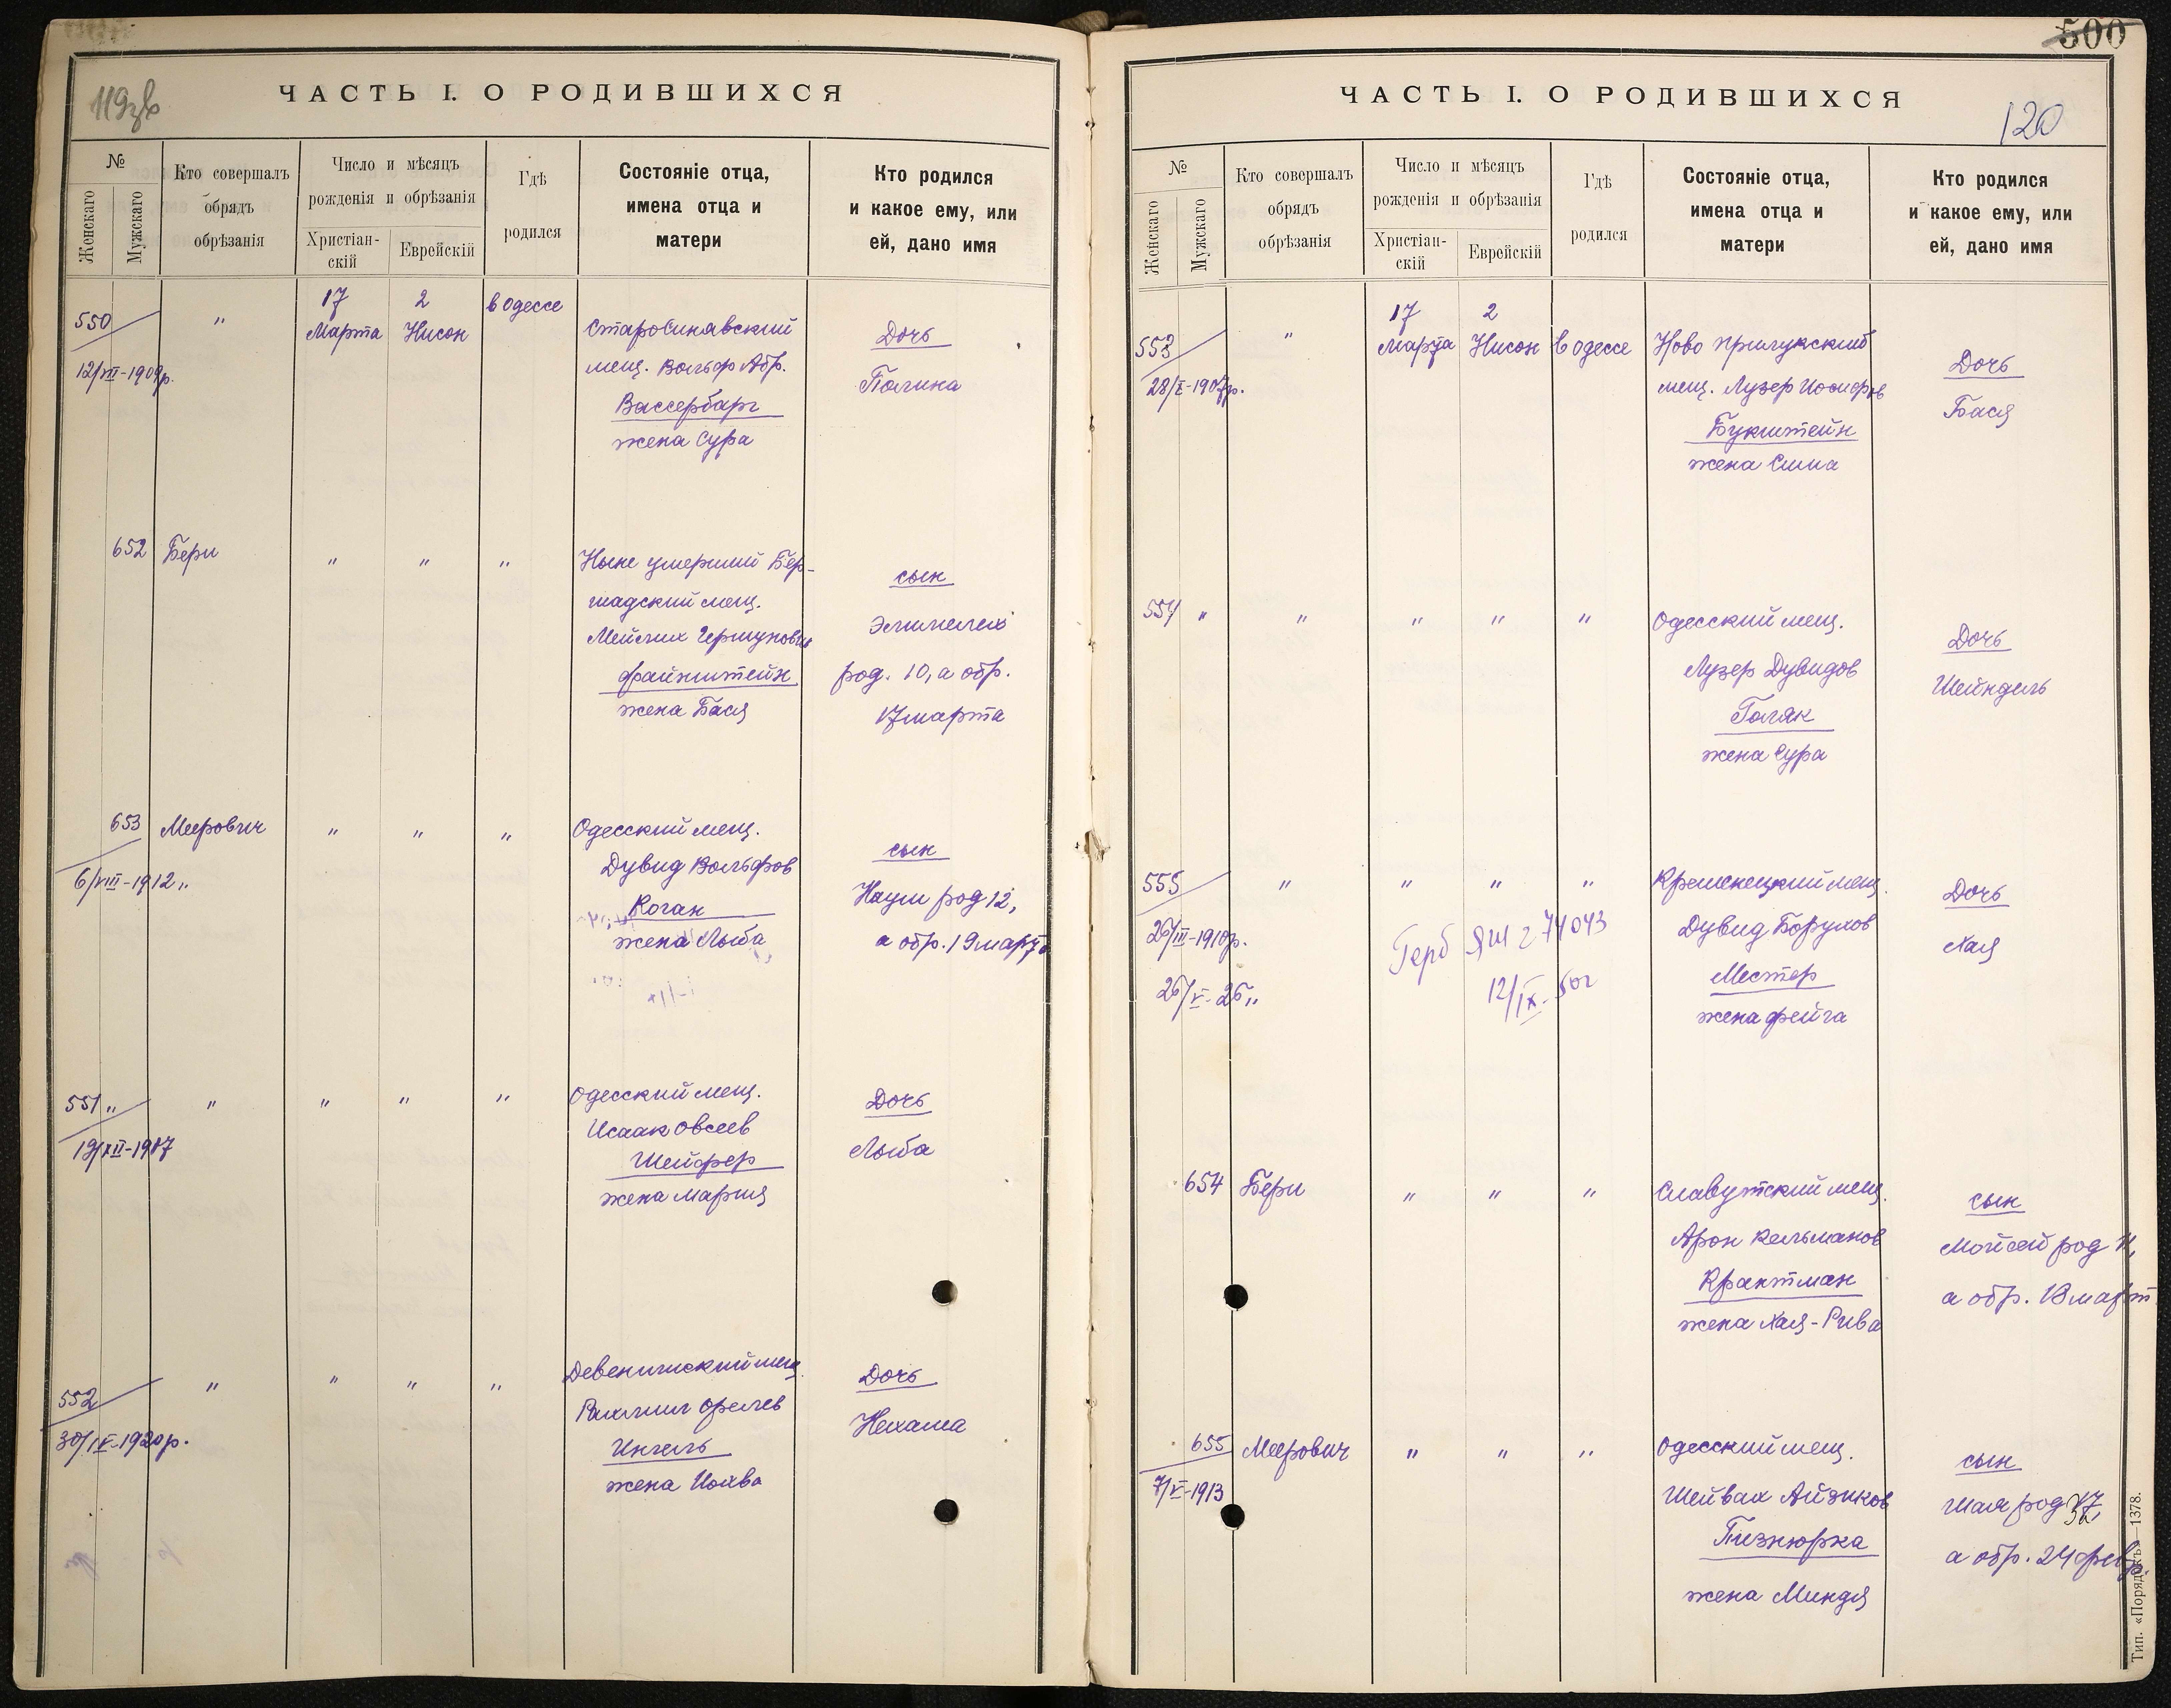 119зв
ЧАСТЬ I. О РОДИВШИХСЯ
№
Женскаго
Мужскаго
Кто совершалъ
обрядъ
обрѣзанія
Число и мѣсяцъ
рожденія и обрѣзанія
Христіан-
скій
Еврейскій
Гдѣ
родился
Состояніе отца,
имена отца и
матери
Кто родился
и какое ему, или
ей, дано имя
550
12/VII-1909р.
"
17
Марта
2
Нисон
в Одессе
Старосинявский
мещ. Вольф Абр.
Вассербарг
жена Сура
Дочь
Полина
652
Бери
" " "
Ныне умерший Бер-
шадский мещ.
Мейлих Гершунович
Файнштейн
жена Бася
сын
Элимелех
род. 10, а обр.
17 марта
653
6/VIII-1912 "
Меерович
" " "
Одесский мещ.
Дувид Вольфов
Коган
жена Люба
сын
Наум род 12,
а обр. 19 марта
551 "
19/XII-1917
" " " "
Одесский мещ.
Исаак Овсеев
Шейфер
жена Мария
Дочь
Люба
552
30/IV-1920р.
" " " "
Девенишский мещ.
Рахмил Орелев
Ингель
жена Иохва
Дочь
Нехама
500
ЧАСТЬ I. О РОДИВШИХСЯ
120
№
Женскаго
Мужскаго
Кто совершалъ
обрядъ
обрѣзанія
Число и мѣсяцъ
рожденія и обрѣзанія
Христіан-
скій
Еврейскій
Гдѣ
родился
Состояніе отца,
имена отца и
матери
Кто родился
и какое ему, или
ей, дано имя
553
28/X-1907р.
"
17
Марта
2
Нисон
в Одессе
Ново Прилукский
мещ. Лузер Иосифов
Букштейн
жена Сима
Дочь
Бася
554 "
" " " "
Одесский мещ.
Лузер Дувидов
Голяк
жена Сура
Дочь
Шейндель
555
26/III-1910р.
26/V-26 "
" " " "
Герб 74043
12/IX-50г
Кременецкий мещ.
Дувид Борухов
Местер
жена Фейга
Дочь
Хая
654
Бери
" " "
Славутский мещ.
Арон Кельманов
Крактман
жена Хая-Рива
сын
Мойсей род 11,
а обр. 18 март
655
7/V-1913
Меерович
" " "
Одесский мещ.
Шейвах Айзиков
Пизнюрка
жена Миндя
сын
Шая род 17,
а обр. 24 февр.
Тип. «Порядокъ—1378.